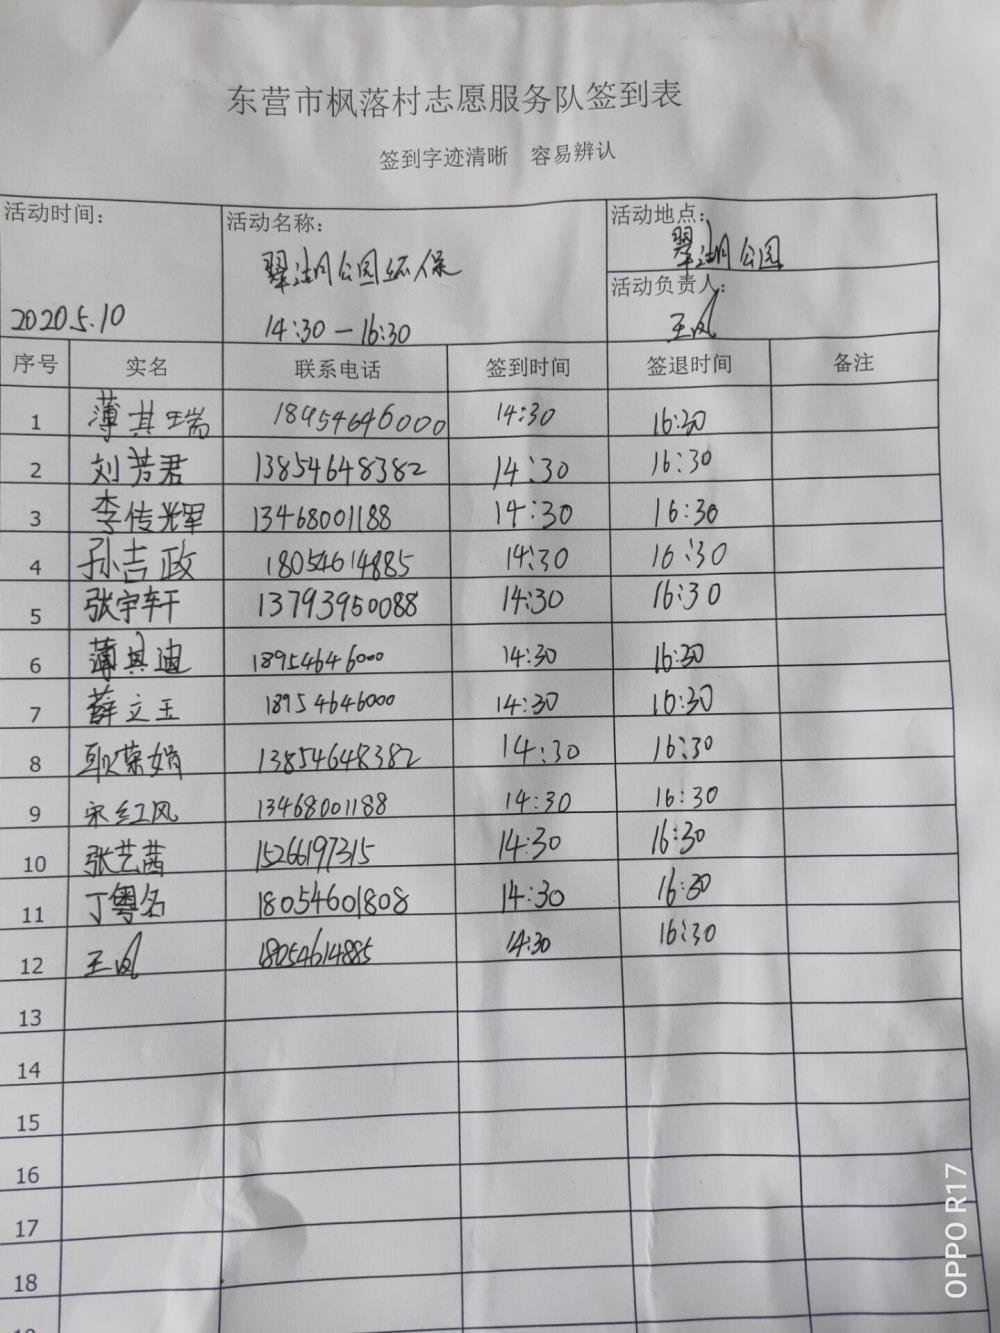 东营市枫落村志愿服务队签到表
签到字迹清晰 容易辨认
活动时间： 活动名称： 活动地点：
翠湖公园环保 翠湖公园
活动负责人：
2020.5.10 14:30-16:30 王凤
序号 实名 联系电话 签到时间 签退时间 备注
1 薄其瑞 18954646000 14:30 16:30
2 刘芳君 13854648382 14:30 16:30
3 李传辉 13468001188 14:30 16:30
4 孙吉政 18054614885 14:30 16:30
5 张宇轩 13793950088 14:30 16:30
6 薄其迪 18954646000 14:30 16:30
7 薛立玉 18954646000 14:30 16:30
8 耿荣娟 13854648382 14:30 16:30
9 宋红风 13468001188 14:30 16:30
10 张艺茜 15266197315 14:30 16:30
11 丁粤名 18054601808 14:30 16:30
12 王凤 18054614885 14:30 16:30
13
14
15
16
17
18
OPPO R17